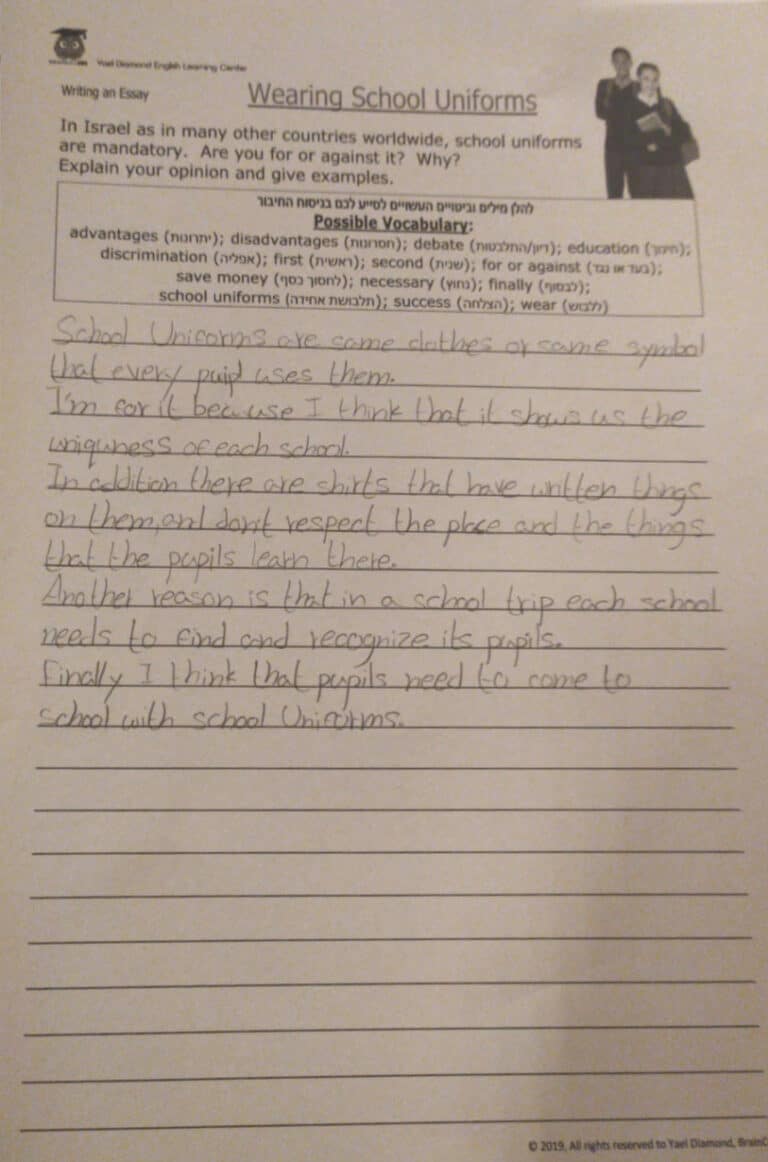 Yael Diamond English Learning Center
Writing an Essay
Wearing School Uniforms
In Israel as in many other countries worldwide, school uniforms
are mandatory. Are you for or against it? Why?
Explain your opinion and give examples.
להלן מילים וביטויים העשויים לסייע לכם בניסוח החיבור
Possible Vocabulary:
advantages (יתרונות); disadvantages (חסרונות); debate (דיון/התלבטות); education (חינוך);
discrimination (אפליה); first (ראשית); second (שנית); for or against (בעד או נגד);
save money (לחסוך כסף); necessary (נחוץ); finally (לבסוף);
school uniforms (תלבושת אחידה); success (הצלחה); wear (ללבוש)
School Uniforms are same clothes or same symbol
that every pupip uses them.
I'm for it because I think that it shows us the
uniquness of each school.
In addition there are shirts that have written things
on them, and don't respect the place and the things
that the pupils learn there.
Another reason is that in a school trip each school
needs to find and recognize its pupils.
Finally I think that pupils need to come to
school with school Uniforms.
© 2019, All rights reserved to Yael Diamond,